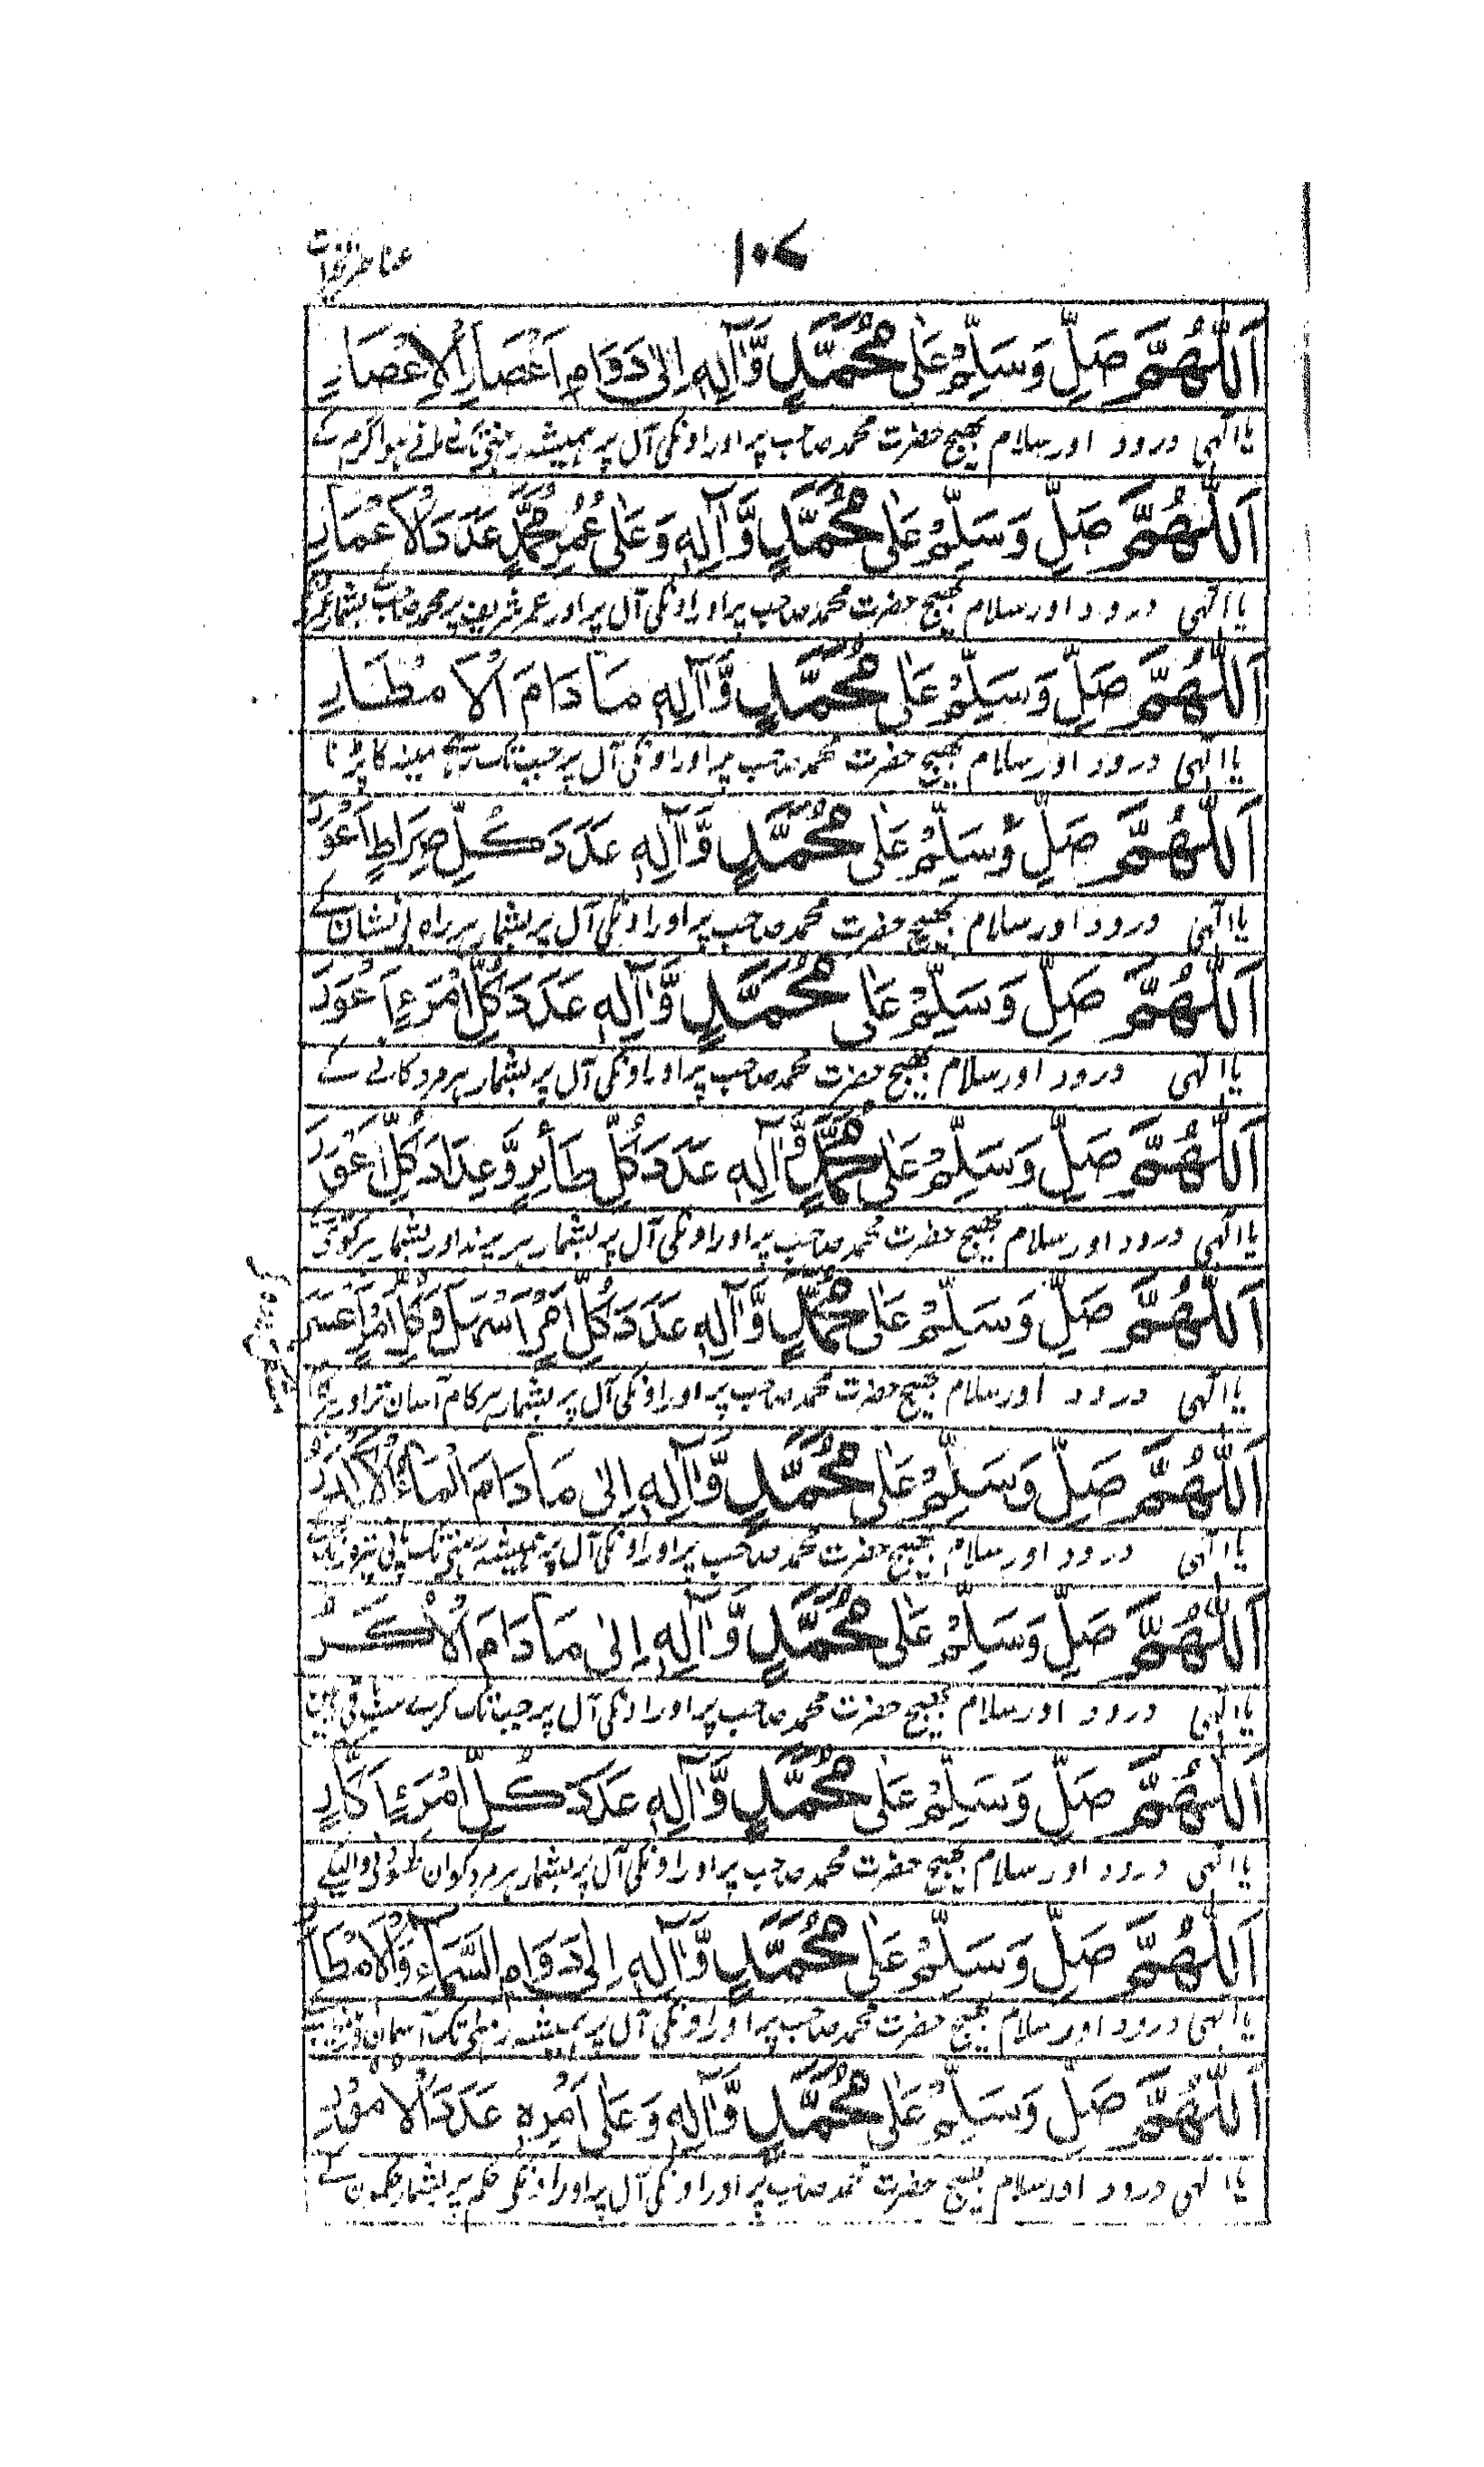 ۱۰۷
اَللّٰهُمَّ صَلِّ وَسَلِّمْ عَلٰى مُحَمَّدٍ وَّاٰلِهٖ اِلٰى دَوَامِ اَعْصَارِ الْاِعْصَارِ
یا الٰہی درود اور سلام بھیج حضرت محمد صاحب پر اور اونکی آل پر ہمیشہ رہنے تک زمانے ہوا گرم کے
اَللّٰهُمَّ صَلِّ وَسَلِّمْ عَلٰى مُحَمَّدٍ وَّاٰلِهٖ وَعَلٰى عُمُرِ مُحَمَّدٍ عَدَدَ الْاَعْمَارِ
یا الٰہی درود اور سلام بھیج حضرت محمد صاحب پر اور اونکی آل پر اور عمر شریف پر محمد صاحب کے بشمار
اَللّٰهُمَّ صَلِّ وَسَلِّمْ عَلٰى مُحَمَّدٍ وَّاٰلِهٖ مَا دَامَ الْاَمْطَارِ
یا الٰہی درود اور سلام بھیج حضرت محمد صاحب پر اور اونکی آل پر جب تک رہے مینہ کا پڑنا
اَللّٰهُمَّ صَلِّ وَسَلِّمْ عَلٰى مُحَمَّدٍ وَّاٰلِهٖ عَدَدَ كُلِّ صِرَاطٍ اَعْوَرَ
یا الٰہی درود اور سلام بھیج حضرت محمد صاحب پر اور اونکی آل پر بشمار ہر راہ نشان کے
اَللّٰهُمَّ صَلِّ وَسَلِّمْ عَلٰى مُحَمَّدٍ وَّاٰلِهٖ عَدَدَ كُلِّ امْرَءٍ اَعْوَرَ
یا الٰہی درود اور سلام بھیج حضرت محمد صاحب پر اور اونکی آل پر بشمار ہر مرد کانے کے
اَللّٰهُمَّ صَلِّ وَسَلِّمْ عَلٰى مُحَمَّدٍ وَّاٰلِهٖ عَدَدَ كُلِّ طَائِرٍ وَّعِدَادَ كُلِّ اَعْوَرَ
یا الٰہی درود اور سلام بھیج حضرت محمد صاحب پر اور اونکی آل پر بشمار ہر پرند اور بشمار ہر
اَللّٰهُمَّ صَلِّ وَسَلِّمْ عَلٰى مُحَمَّدٍ وَّاٰلِهٖ عَدَدَ كُلِّ اَمْرٍ اَسْهَلَ وَكُلِّ اَمْرٍ اَعْسَرَ
یا الٰہی درود اور سلام بھیج حضرت محمد صاحب پر اور اونکی آل پر بشمار ہر کام آسان تر اور
اَللّٰهُمَّ صَلِّ وَسَلِّمْ عَلٰى مُحَمَّدٍ وَّاٰلِهٖ اِلٰى مَا دَامَ الْمَاءُ الْاَكْدَرُ
یا الٰہی درود اور سلام بھیج حضرت محمد صاحب پر اور اونکی آل پر ہمیشہ رہنے تک پانی
اَللّٰهُمَّ صَلِّ وَسَلِّمْ عَلٰى مُحَمَّدٍ وَّاٰلِهٖ اِلٰى مَا دَامَ الْاَكَرُّ
یا الٰہی درود اور سلام بھیج حضرت محمد صاحب پر اور اونکی آل پر جب تک
اَللّٰهُمَّ صَلِّ وَسَلِّمْ عَلٰى مُحَمَّدٍ وَّاٰلِهٖ عَدَدَ كُلِّ امْرَئٍ اَكَّارٍ
یا الٰہی درود اور سلام بھیج حضرت محمد صاحب پر اور اونکی آل پر بشمار ہر مرد کوان
اَللّٰهُمَّ صَلِّ وَسَلِّمْ عَلٰى مُحَمَّدٍ وَّاٰلِهٖ اِلٰى دَوَامِ السَّمَآءِ وَالْاَمْطَارِ
یا الٰہی درود اور سلام بھیج حضرت محمد صاحب پر اور اونکی آل پر ہمیشہ رہنے تک آسمان
اَللّٰهُمَّ صَلِّ وَسَلِّمْ عَلٰى مُحَمَّدٍ وَّاٰلِهٖ وَعَلٰى اَمْرِهٖ عَدَدَ الْاُمُوْرِ
یا الٰہی درود اور سلام بھیج حضرت محمد صاحب پر اور اونکی آل پر اور اونکے حکم پر بشمار حکمون کے